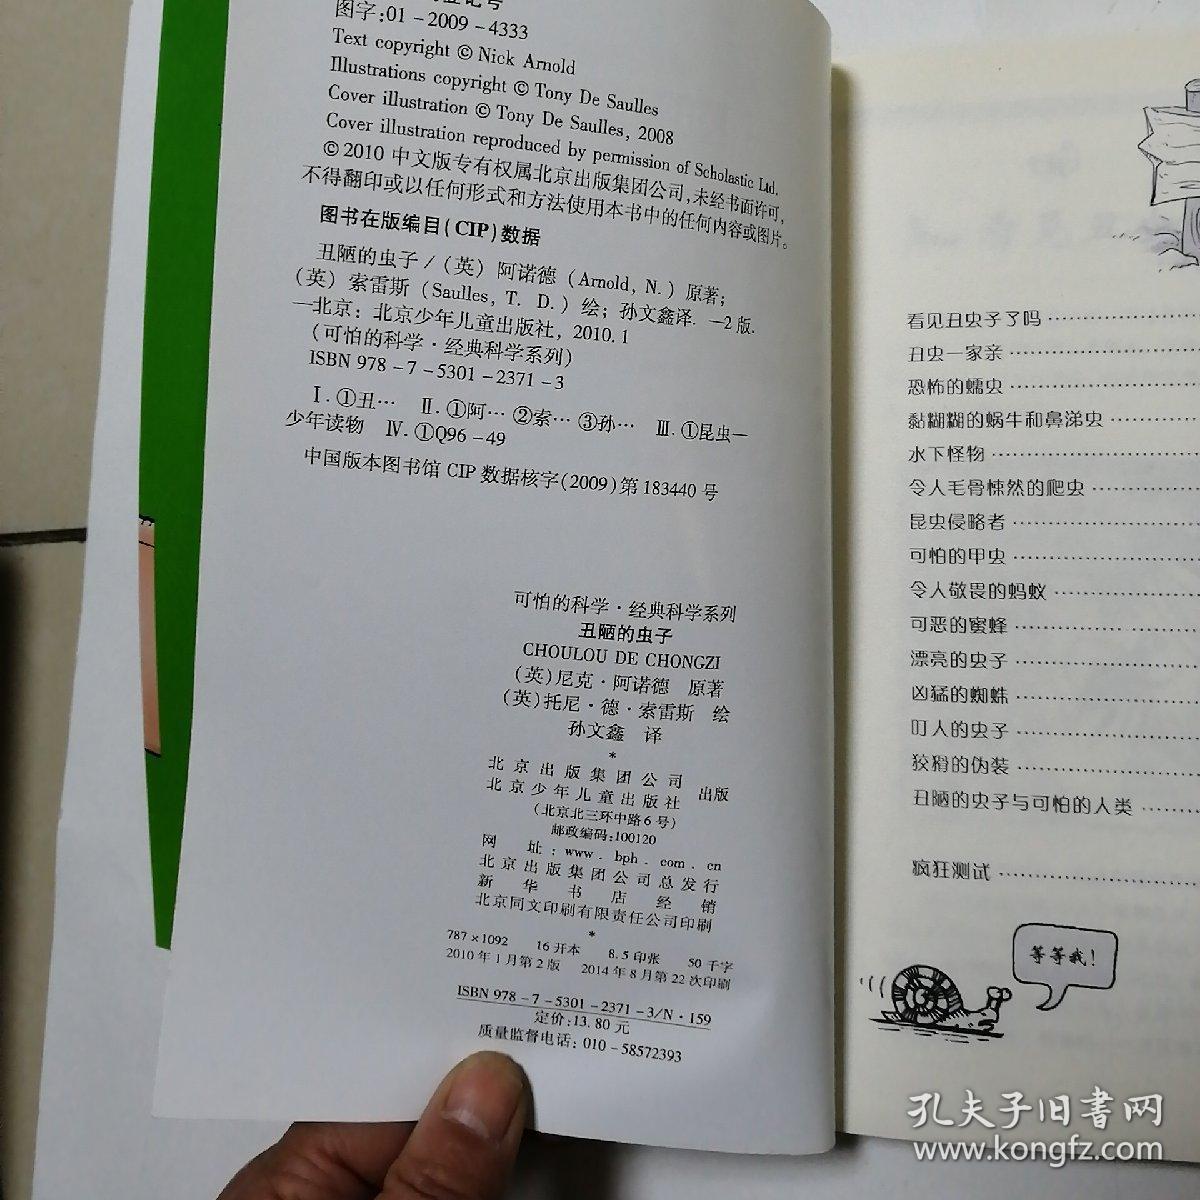 图字:01-2009-4333
Text copyright © Nick Arnold
Illustrations copyright © Tony De Saulles
Cover illustration © Tony De Saulles, 2008
Cover illustration reproduced by permission of Scholastic Ltd.
©2010 中文版专有权属北京出版集团公司,未经书面许可,
不得翻印或以任何形式和方法使用本书中的任何内容或图片。
图书在版编目(CIP)数据
丑陋的虫子/(英)阿诺德(Arnold, N.)原著;
(英)索雷斯(Saulles, T. D.)绘;孙文鑫译. —2版.
—北京:北京少年儿童出版社,2010.1
(可怕的科学·经典科学系列)
ISBN 978-7-5301-2371-3
Ⅰ.①丑… Ⅱ.①阿… ②索… ③孙… Ⅲ.①昆虫—
少年读物 Ⅳ.①Q96-49
中国版本图书馆CIP数据核字(2009)第183440号
可怕的科学·经典科学系列
丑陋的虫子
CHOULOU DE CHONGZI
(英)尼克·阿诺德 原著
(英)托尼·德·索雷斯 绘
孙文鑫 译
*
北京出版集团公司
北京少年儿童出版社 出版
(北京北三环中路6号)
邮政编码:100120
网址:www.bph.com.cn
北京出版集团公司总发行
新华书店经销
北京同文印刷有限责任公司印刷
*
787×1092 16开本 8.5印张 50千字
2010年1月第2版 2014年8月第22次印刷
ISBN 978-7-5301-2371-3/N·159
定价:13.80元
质量监督电话:010-58572393
看见丑虫子了吗
丑虫一家亲
恐怖的蠕虫
黏糊糊的蜗牛和鼻涕虫
水下怪物
令人毛骨悚然的爬虫
昆虫侵略者
可怕的甲虫
令人敬畏的蚂蚁
可恶的蜜蜂
漂亮的虫子
凶猛的蜘蛛
叮人的虫子
狡猾的伪装
丑陋的虫子与可怕的人类
疯狂测试
等等我!
孔夫子旧书网
www.kongfz.com